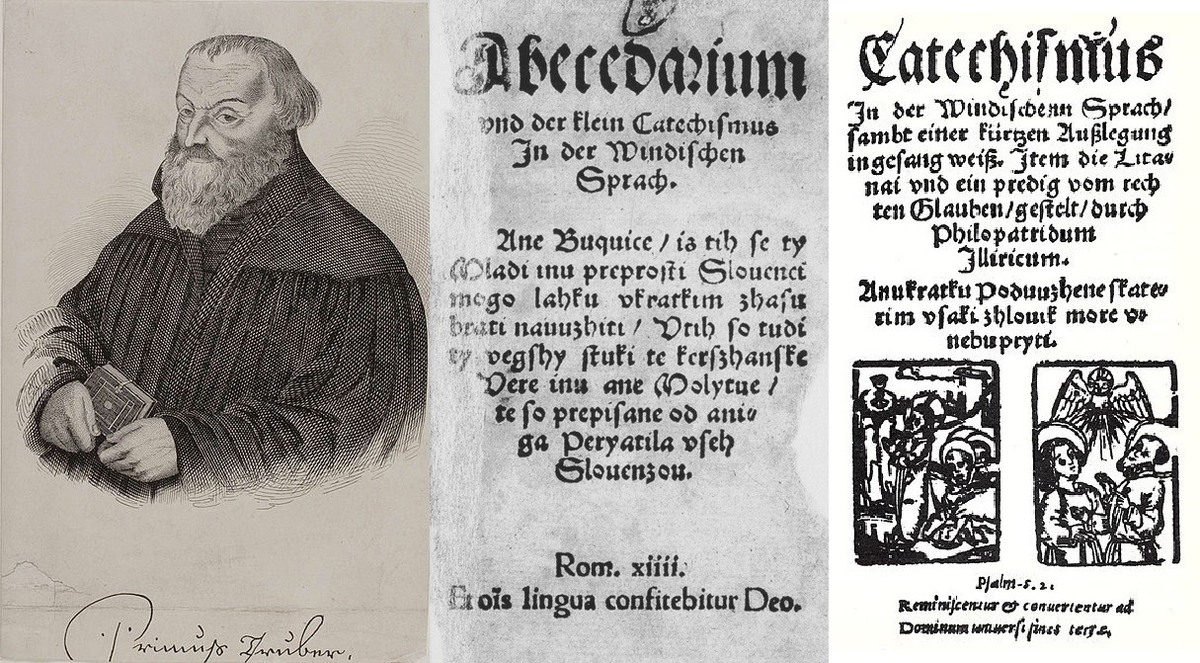 Primuss Truber.
Abecedarium
vnd der klein Catechismus
In der Windischen
Sprach.
Ane Buquice / is tih se ty
Mladi inu preprosti Slouenci
mogo lahku vkratkim zhasu
brati nauuzhiti / Vtih so tudi
ty vegshy stuki te kerszhanske
Vere inu ane Molytue /
te so prepisane od ani⸗
ga Peryatila vseh
Slouenzou.
Rom. xiiii.
Et oīs lingua confitebitur Deo.
Catechismus
In der Windischenn Sprach/
sambt einer kürtzen Außlegung
in gesang weiß. Item die Lita⸗
nai vnd ein predig vom rech
ten Glauben/gestelt/durch
Philopatridum
Illiricum.
Anu kratku Poduuzhene skate⸗
rim vsaki zhlouik more v⸗
nebu pryti.
Psalm.
Reminiscentur & conuertentur ad
Dominum vniuersi fines terræ.